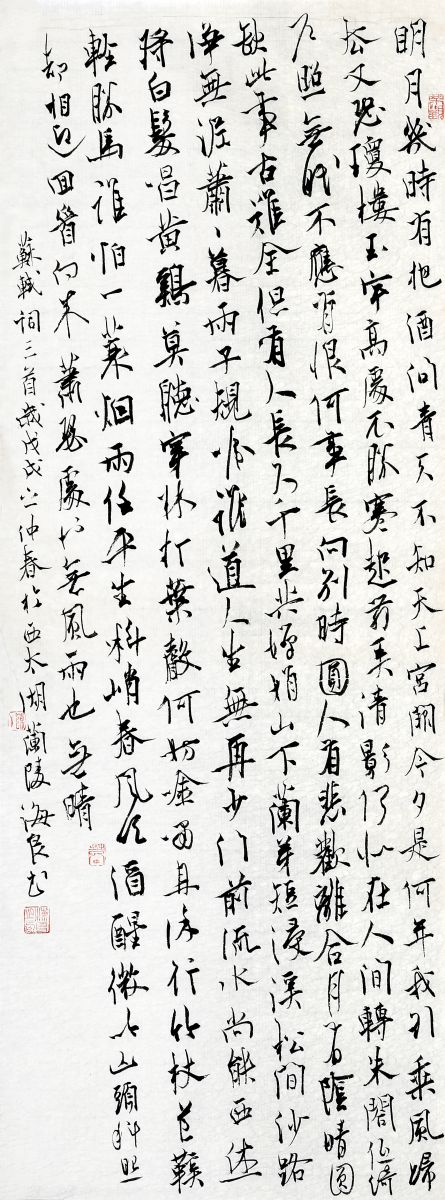 明月幾時有把酒问青天不知天上宮闕今夕是何年我欲乘風歸
去又恐瓊樓玉宇高處不勝寒起舞弄清影何似在人间轉朱閣低綺
户照無眠不應有恨何事長向别時圓人有悲歡離合月有陰晴圓
缺此事古難全但願人長久千里共嬋娟山下蘭芽短浸溪松间沙路
淨無泥蕭、暮雨子規啼誰道人生無再少门前流水尚能西休
將白髮唱黄鷄莫聽穿林打葉聲何妨吟嘯且徐行竹杖芒鞋
輕勝馬誰怕一蓑烟雨任平生料峭春风吹酒醒微冷山頭斜照
却相迎回首向来蕭瑟處也無風雨也無晴
蘇軾詞三首歲戊戌之仲春於西太湖蘭陵海良书